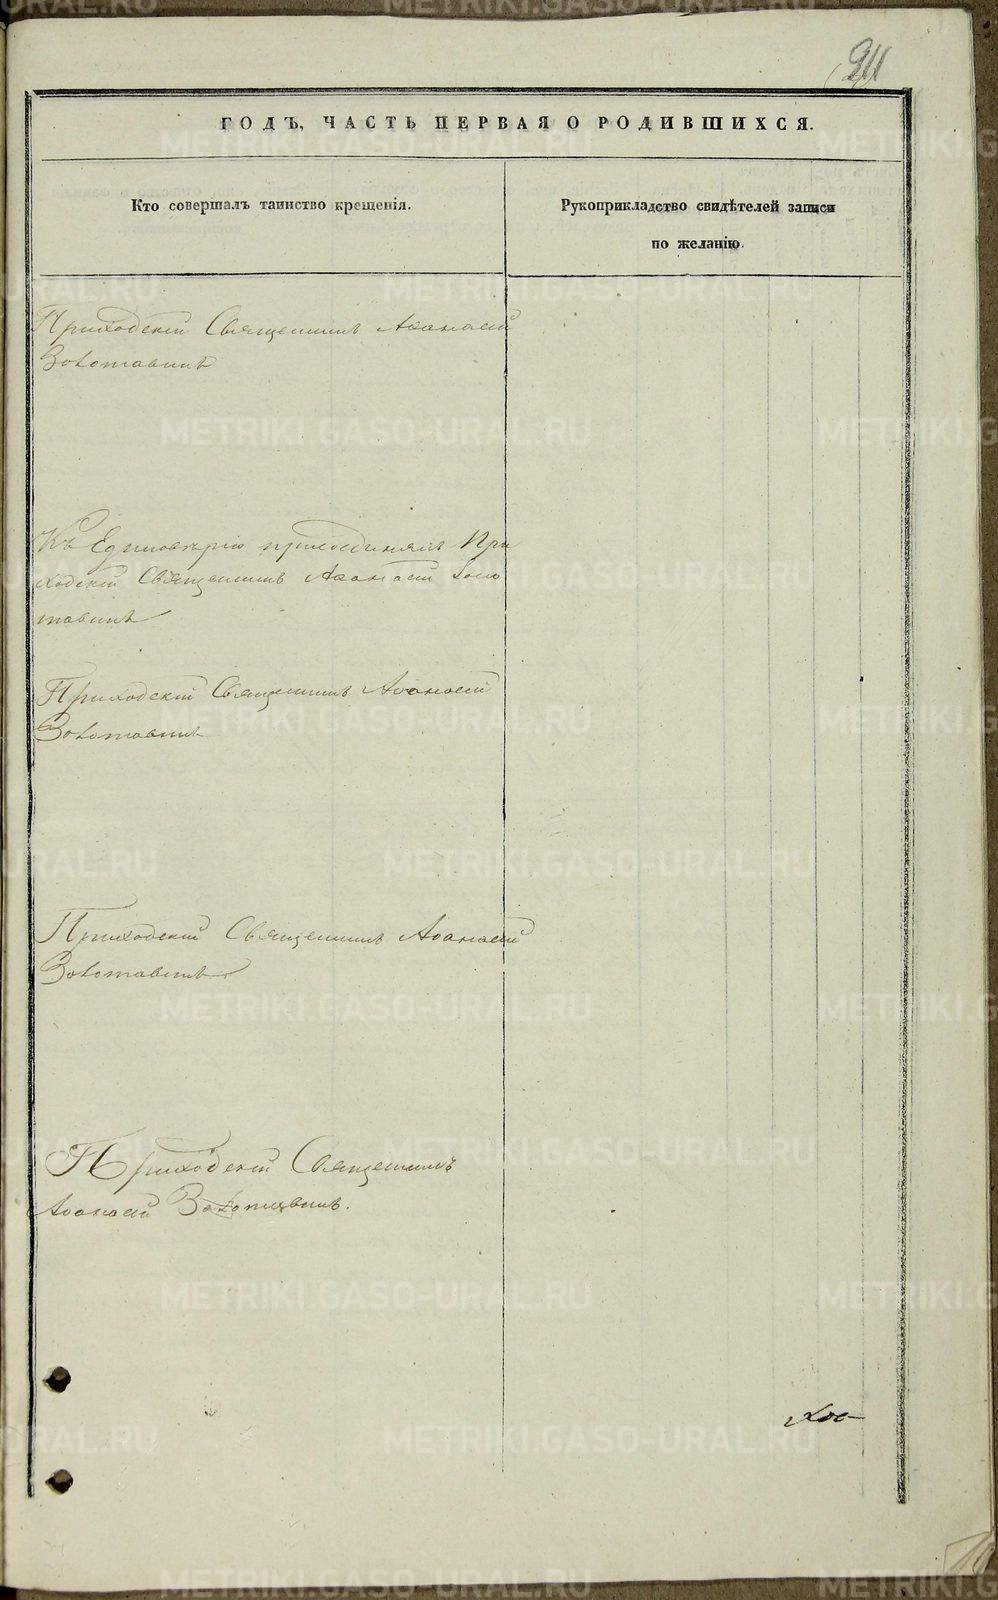 ГОДЪ, ЧАСТЬ ПЕРВАЯ О РОДИВШИХСЯ.
Кто совершалъ таинство крещенія.
Рукоприкладство свидѣтелей записи
по желанію.
Приходскій Священникъ Аѳанасій
Золотавинъ
Къ Единовѣрію присоединялъ При
ходскій Священникъ Аѳанасій Золо
тавинъ
Приходскій Священникъ Аѳанасій
Золотавинъ
Приходскій Священникъ Аѳанасій
Золотавинъ
Приходскій Священникъ
Аѳанасій Золотавинъ.
METRIKI.GASO-URAL.RU